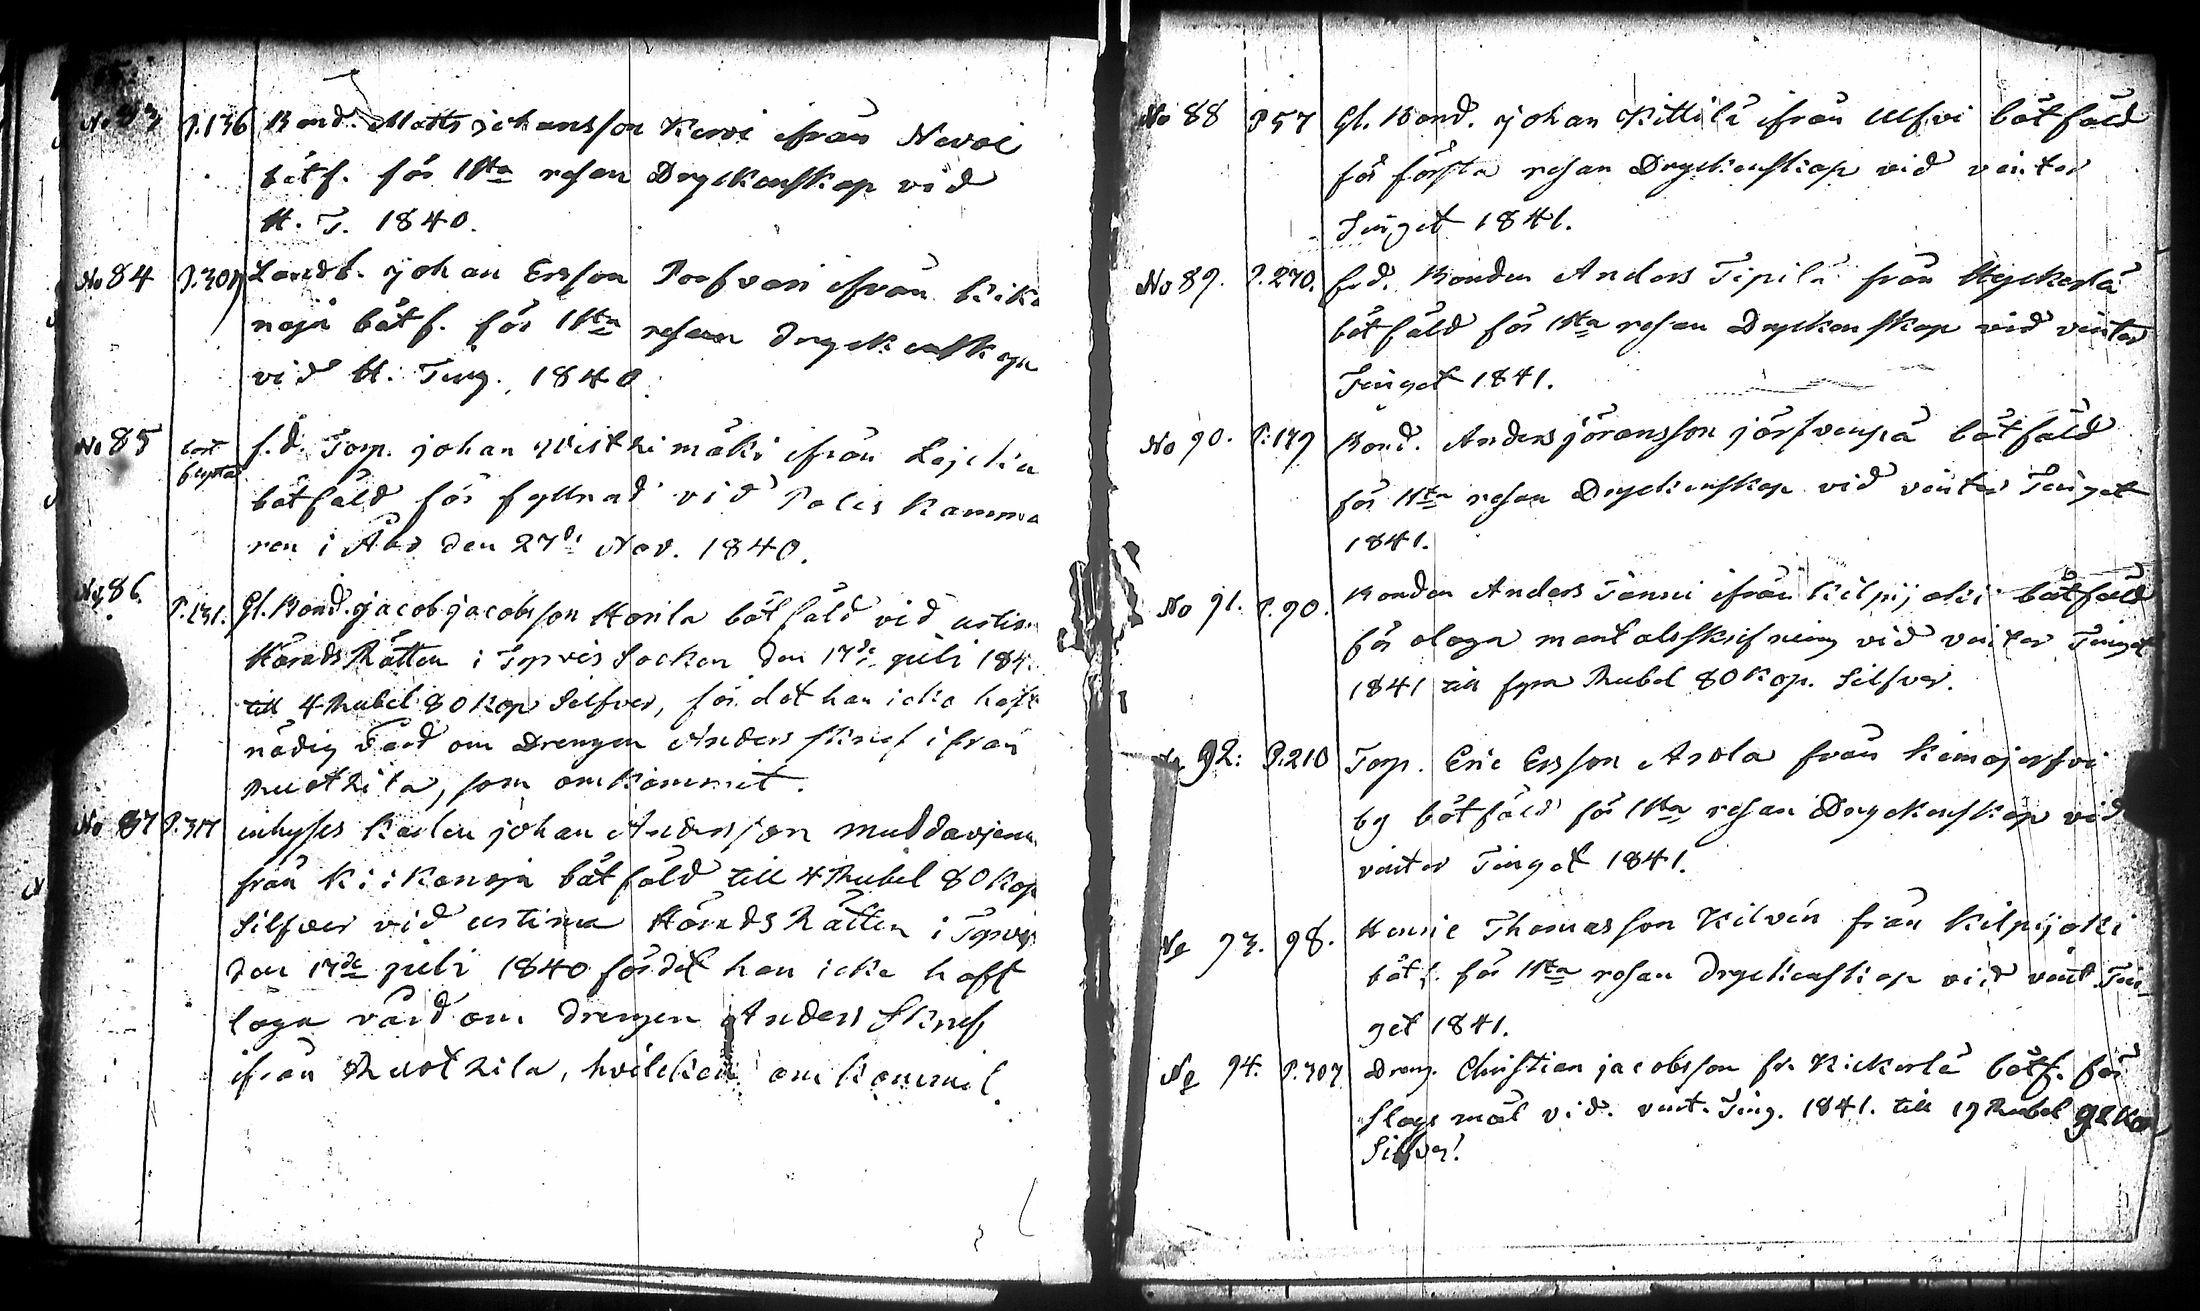 No 83 P.136 Bond. Matts Johansson Kervi ifrån Nevoi
bötf. för 1sta resan Dryckenskap vid
H. T. 1840.
No 84 P.307 Landb. Johan Ersson Poosvari ifrån Kika
noja bötf. för 1sta resan dryckenskap
vid H. Ting. 1840.
No 85 bort flyttad f.d. Torp. Johan Ristkimäki ifrån Lojelia
bötfäld för fyllnad vid Polis Kamma
ren i Åbo den 27de Nov. 1840.
No 86. P.131. Gl. Bond. Jacob Jacobsson Horila bötfäld vid urtim
Härads Rätten i Typvis Socken den 17de juli 184.
till 4 Rubel 80 Kop Silfver, för det han icke haft
nödig vård om Drengen Anders Skref ifrån
Ruotzila, som omkommit.
No 87 P.317 inhyses Karlen Johan Andersson muddaisjen
från Kiikanoja bötfäld till 4 Rubel 80 Kop
Silfver vid urtima Härads Rätten i Typvis
den 17de juli 1840 för det han icke haft
laga vård om drengen Anders Skref
ifrån Ruotzila, hvilcken omkommit.
No 88 P 57 Gl. Bond. Johan Kittilä ifrån Ulfvi bötfäld
för första resan Dryckenskap vid vinter
Tinget 1841.
No 89. P.270. f.d. Bonden Anders Tipilä från Hyckerlä
bötfäld för 1sta resan Dryckenskap vid vinter
Tinget 1841.
No 90. P.179 Bond. Anders Jöransson Jörfvenpä bötfäld
för 1sta resan Dryckenskap vid vinter Tinget
1841.
No 91. P.90. Bonden Anders Tänni ifrån Kilpijoki bötfäld
för olaga mantalsskrifning vid vinter Tinget
1841 till fyra Rubel 80 Kop. Silfver.
No 92. P.210 Torp. Eric Ersson Arola från Kimajerfvi
by bötfäld för 1sta resan Dryckenskap vid
vinter Tinget 1841.
No 93. 98. Henric Thomasson Kilvén från Kilpijoki
bötf. för 1sta resan dryckenskap vid vint. Tin-
get 1841.
No 94. P.307 Dreng. Christian Jacobsson fr. Kickerlä bötf. för
Slags mål vid. vint. Ting. 1841. till 19 Rubel 92 Kop
Silfver.